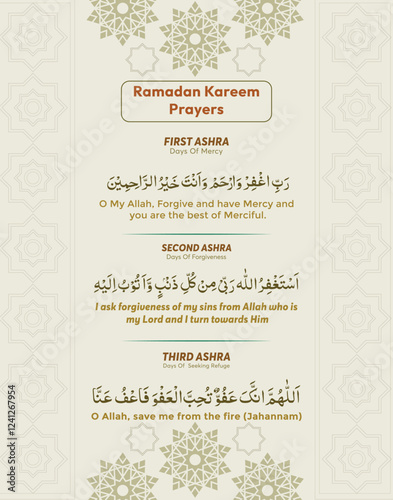 Ramadan Kareem
Prayers
FIRST ASHRA
Days Of Mercy
رَبِّ اغْفِرْ وَارْحَمْ وَاَنْتَ خَيْرُ الرَّاحِمِيْنَ
O My Allah, Forgive and have Mercy and
you are the best of Merciful.
SECOND ASHRA
Days Of Forgiveness
اَسْتَغْفِرُ اللّٰهَ رَبِّىْ مِنْ كُلِّ ذَنْۢبٍ وَّاَتُوْبُ اِلَيْهِ
I ask forgiveness of my sins from Allah who is
my Lord and I turn towards Him
THIRD ASHRA
Days Of Seeking Refuge
اَللّٰهُمَّ اِنَّكَ عَفُوٌّ تُحِبُّ الْعَفْوَ فَاعْفُ عَنَّا
O Allah, save me from the fire (Jahannam)
Adobe Stock | #1241267954